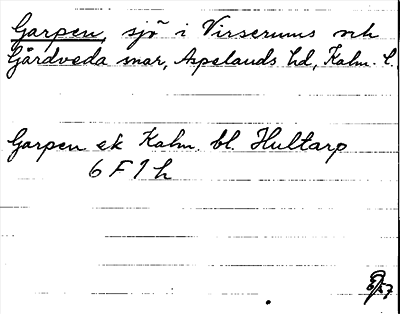 Garpen, sjö i Virserums och
Gårdveda snar, Aspelands hd, Kalm. l.
Garpen ek Kalm. bl. Hultarp
6 F 1 h